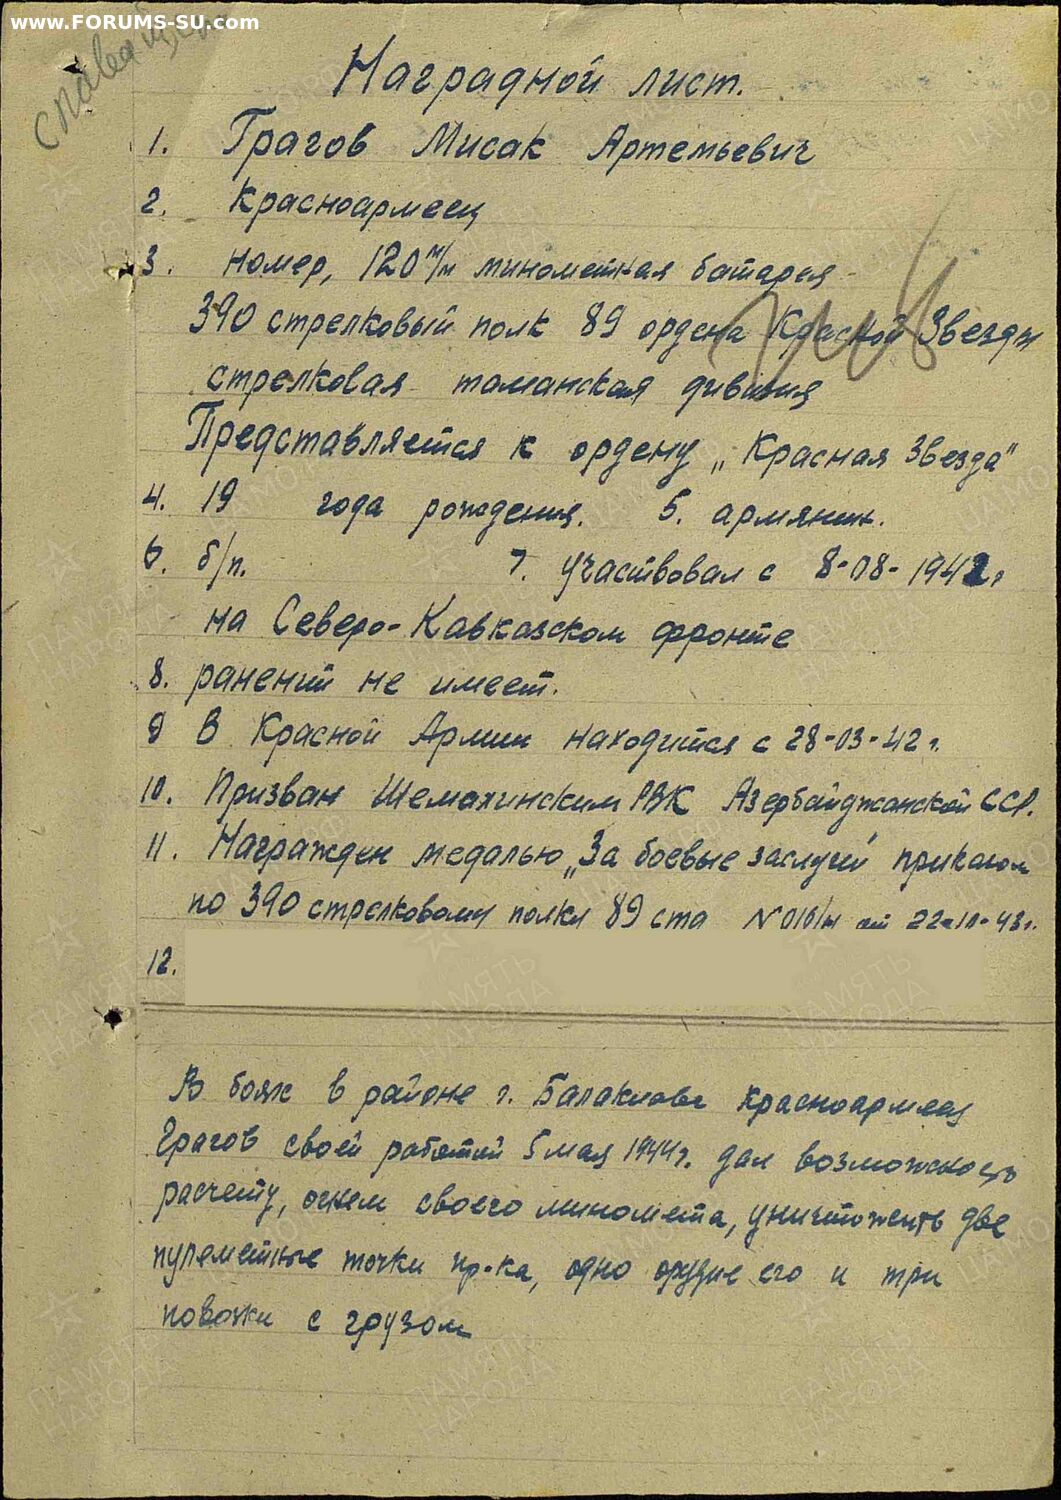 www.FORUMS-SU.com
Наградной лист.
1. Грагов Мисак Артемьевич
2. Красноармеец
3. номер, 120 м/м минометная батарея
390 стрелковый полк 89 ордена Красной Звезды
стрелковая таманская дивизия
Представляется к ордену „Красная Звезда"
4. 19 года рождения. 5. армянин.
6. б/п. 7. участвовал с 8-08-1942г
на Северо-Кавказском фронте
8. ранений не имеет.
9 В Красной Армии находится с 28-03-42 г.
10. Призван Шемахинским РВК Азербайджанской ССР.
11. Награжден медалью „За боевые заслуги" приказом
по 390 стрелковому полку 89 ста N 016/н от 22-11-43г.
12.
В боях в районе г. Балаклава красноармеец
Грагов своей работой 5 мая 1944г. дал возможность
расчету, огнем своего миномета, уничтожить две
пулеметные точки пр-ка, одно орудие его и три
повозки с грузом
ПАМЯТЬ НАРОДА